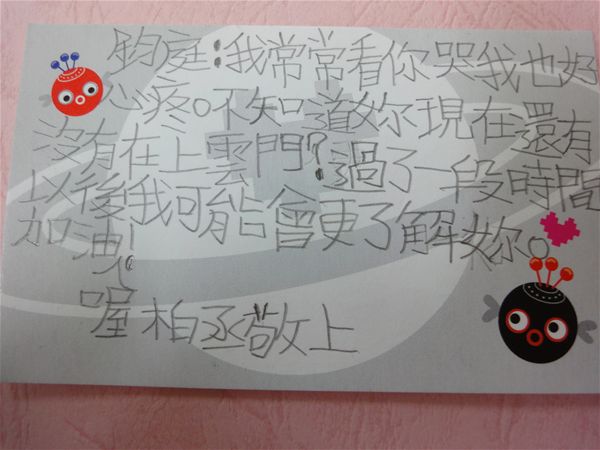 鈞庭:我常常看你哭我也好
心疼。不知道妳現在還有
沒有在上雲門?過了一段時間
以後我可能會更了解妳。
加油!
喔柏丞敬上